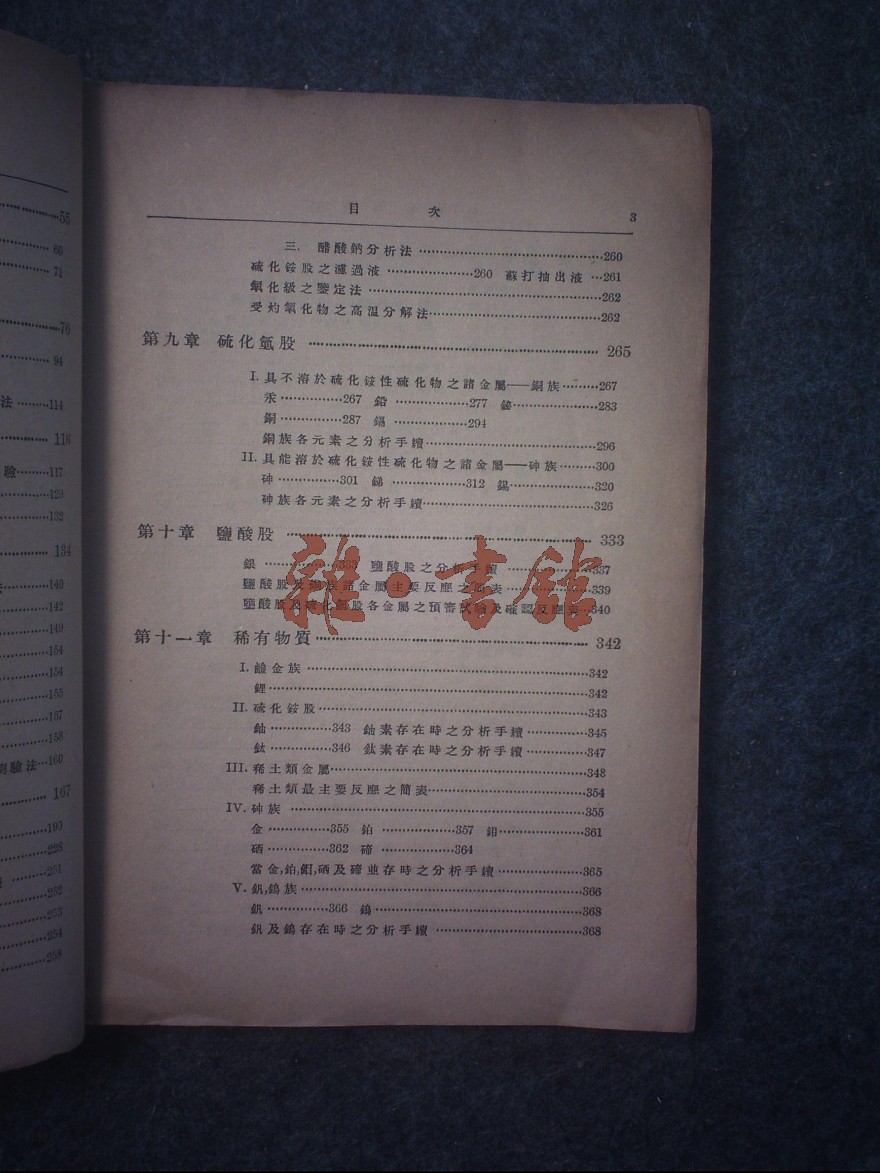 55
60
71
76
94
法………114
116
驗………117
129
132
134
140
142
149
154
154
155
157
158
驗法…160
167
195
228
251
252
253
254
258
目 次 3
三. 醋酸鈉分析法………260
硫化銨股之濾過液………260 蘇打抽出液…261
氧化級之鑒定法………262
受灼氧化物之高溫分解法………262
第九章 硫化氫股………265
I. 具不溶於硫化銨性硫化物之諸金屬——銅族………267
汞………267 鉛………277 鉍………283
銅………287 鎘………294
銅族各元素之分析手續………296
II. 具能溶於硫化銨性硫化物之諸金屬——砷族………300
砷………301 銻………312 錫………320
砷族各元素之分析手續………326
第十章 鹽酸股………333
銀………333 鹽酸股之分析手續………337
鹽酸股及銅族諸金屬主要反應之簡表………339
鹽酸股及硫化氫股各金屬之預審試驗及確認反應表…340
雜·書館
第十一章 稀有物質………342
I. 鹼金族………342
鋰………342
II. 硫化銨股………343
鈾………343 鈾素存在時之分析手續………345
鈦………346 鈦素存在時之分析手續………347
III. 稀土類金屬………348
稀土類最主要反應之簡表………354
IV. 砷族………355
金………355 鉑………357 鉬………361
硒………362 碲………364
當金,鉑,鉬,硒及碲並存時之分析手續………365
V. 釩,鎢族………366
釩………366 鎢………368
釩及鎢存在時之分析手續………368